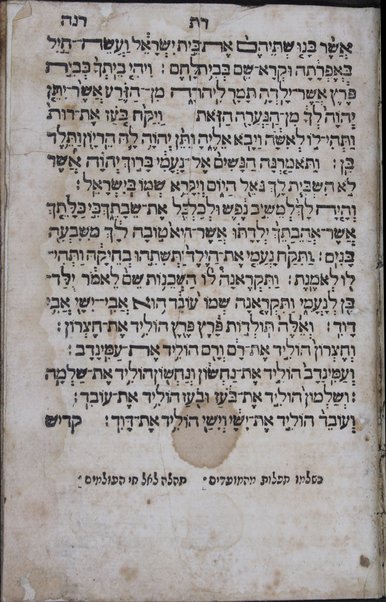 רות רנה
אֲשֶׁר בָּנוּ שְׁתֵּיהֶם אֶת־בֵּית יִשְׂרָאֵל וַעֲשֵׂה־חַיִל
בְּאֶפְרָתָה וּקְרָא־שֵׁם בְּבֵית לָחֶם : וִיהִי בֵיתְךָ כְּבֵית
פֶּרֶץ אֲשֶׁר־יָלְדָה תָמָר לִיהוּדָה מִן־הַזֶּרַע אֲשֶׁר יִתֵּן
יְהוָה לְךָ מִן־הַנַּעֲרָה הַזֹּאת : וַיִּקַּח בֹּעַז אֶת־רוּת
וַתְּהִי־לוֹ לְאִשָּׁה וַיָּבֹא אֵלֶיהָ וַיִּתֵּן יְהוָה לָהּ הֵרָיוֹן וַתֵּלֶד
בֵּן : וַתֹּאמַרְנָה הַנָּשִׁים אֶל־נָעֳמִי בָּרוּךְ יְהוָה אֲשֶׁר
לֹא הִשְׁבִּית לָךְ גֹּאֵל הַיּוֹם וְיִקָּרֵא שְׁמוֹ בְּיִשְׂרָאֵל :
וְהָיָה לָךְ לְמֵשִׁיב נֶפֶשׁ וּלְכַלְכֵּל אֶת־שֵׂבָתֵךְ כִּי כַלָּתֵךְ
אֲשֶׁר־אֲהֵבָתֶךְ יְלָדַתּוּ אֲשֶׁר־הִיא טוֹבָה לָךְ מִשִּׁבְעָה
בָּנִים : וַתִּקַּח נָעֳמִי אֶת־הַיֶּלֶד וַתְּשִׁתֵהוּ בְחֵיקָהּ וַתְּהִי־
לוֹ לְאֹמֶנֶת : וַתִּקְרֶאנָה לוֹ הַשְּׁכֵנוֹת שֵׁם לֵאמֹר יֻלַּד־
בֵּן לְנָעֳמִי וַתִּקְרֶאנָה שְׁמוֹ עוֹבֵד הוּא אֲבִי־יִשַׁי אֲבִי
דָוִד : וְאֵלֶּה תּוֹלְדוֹת פָּרֶץ פֶּרֶץ הוֹלִיד אֶת־חֶצְרוֹן :
וְחֶצְרוֹן הוֹלִיד אֶת־רָם וְרָם הוֹלִיד אֶת־עַמִּינָדָב :
וְעַמִּינָדָב הוֹלִיד אֶת־נַחְשׁוֹן וְנַחְשׁוֹן הוֹלִיד אֶת־שַׂלְמָה
: וְשַׂלְמוֹן הוֹלִיד אֶת־בֹּעַז וּבֹעַז הוֹלִיד אֶת־עוֹבֵד :
וְעוֹבֵד הוֹלִיד אֶת־יִשָׁי וְיִשַׁי הוֹלִיד אֶת־דָּוִד : קדיש
נשלמו תפלות מהמועדים : תהלה לאל חי העולמים :